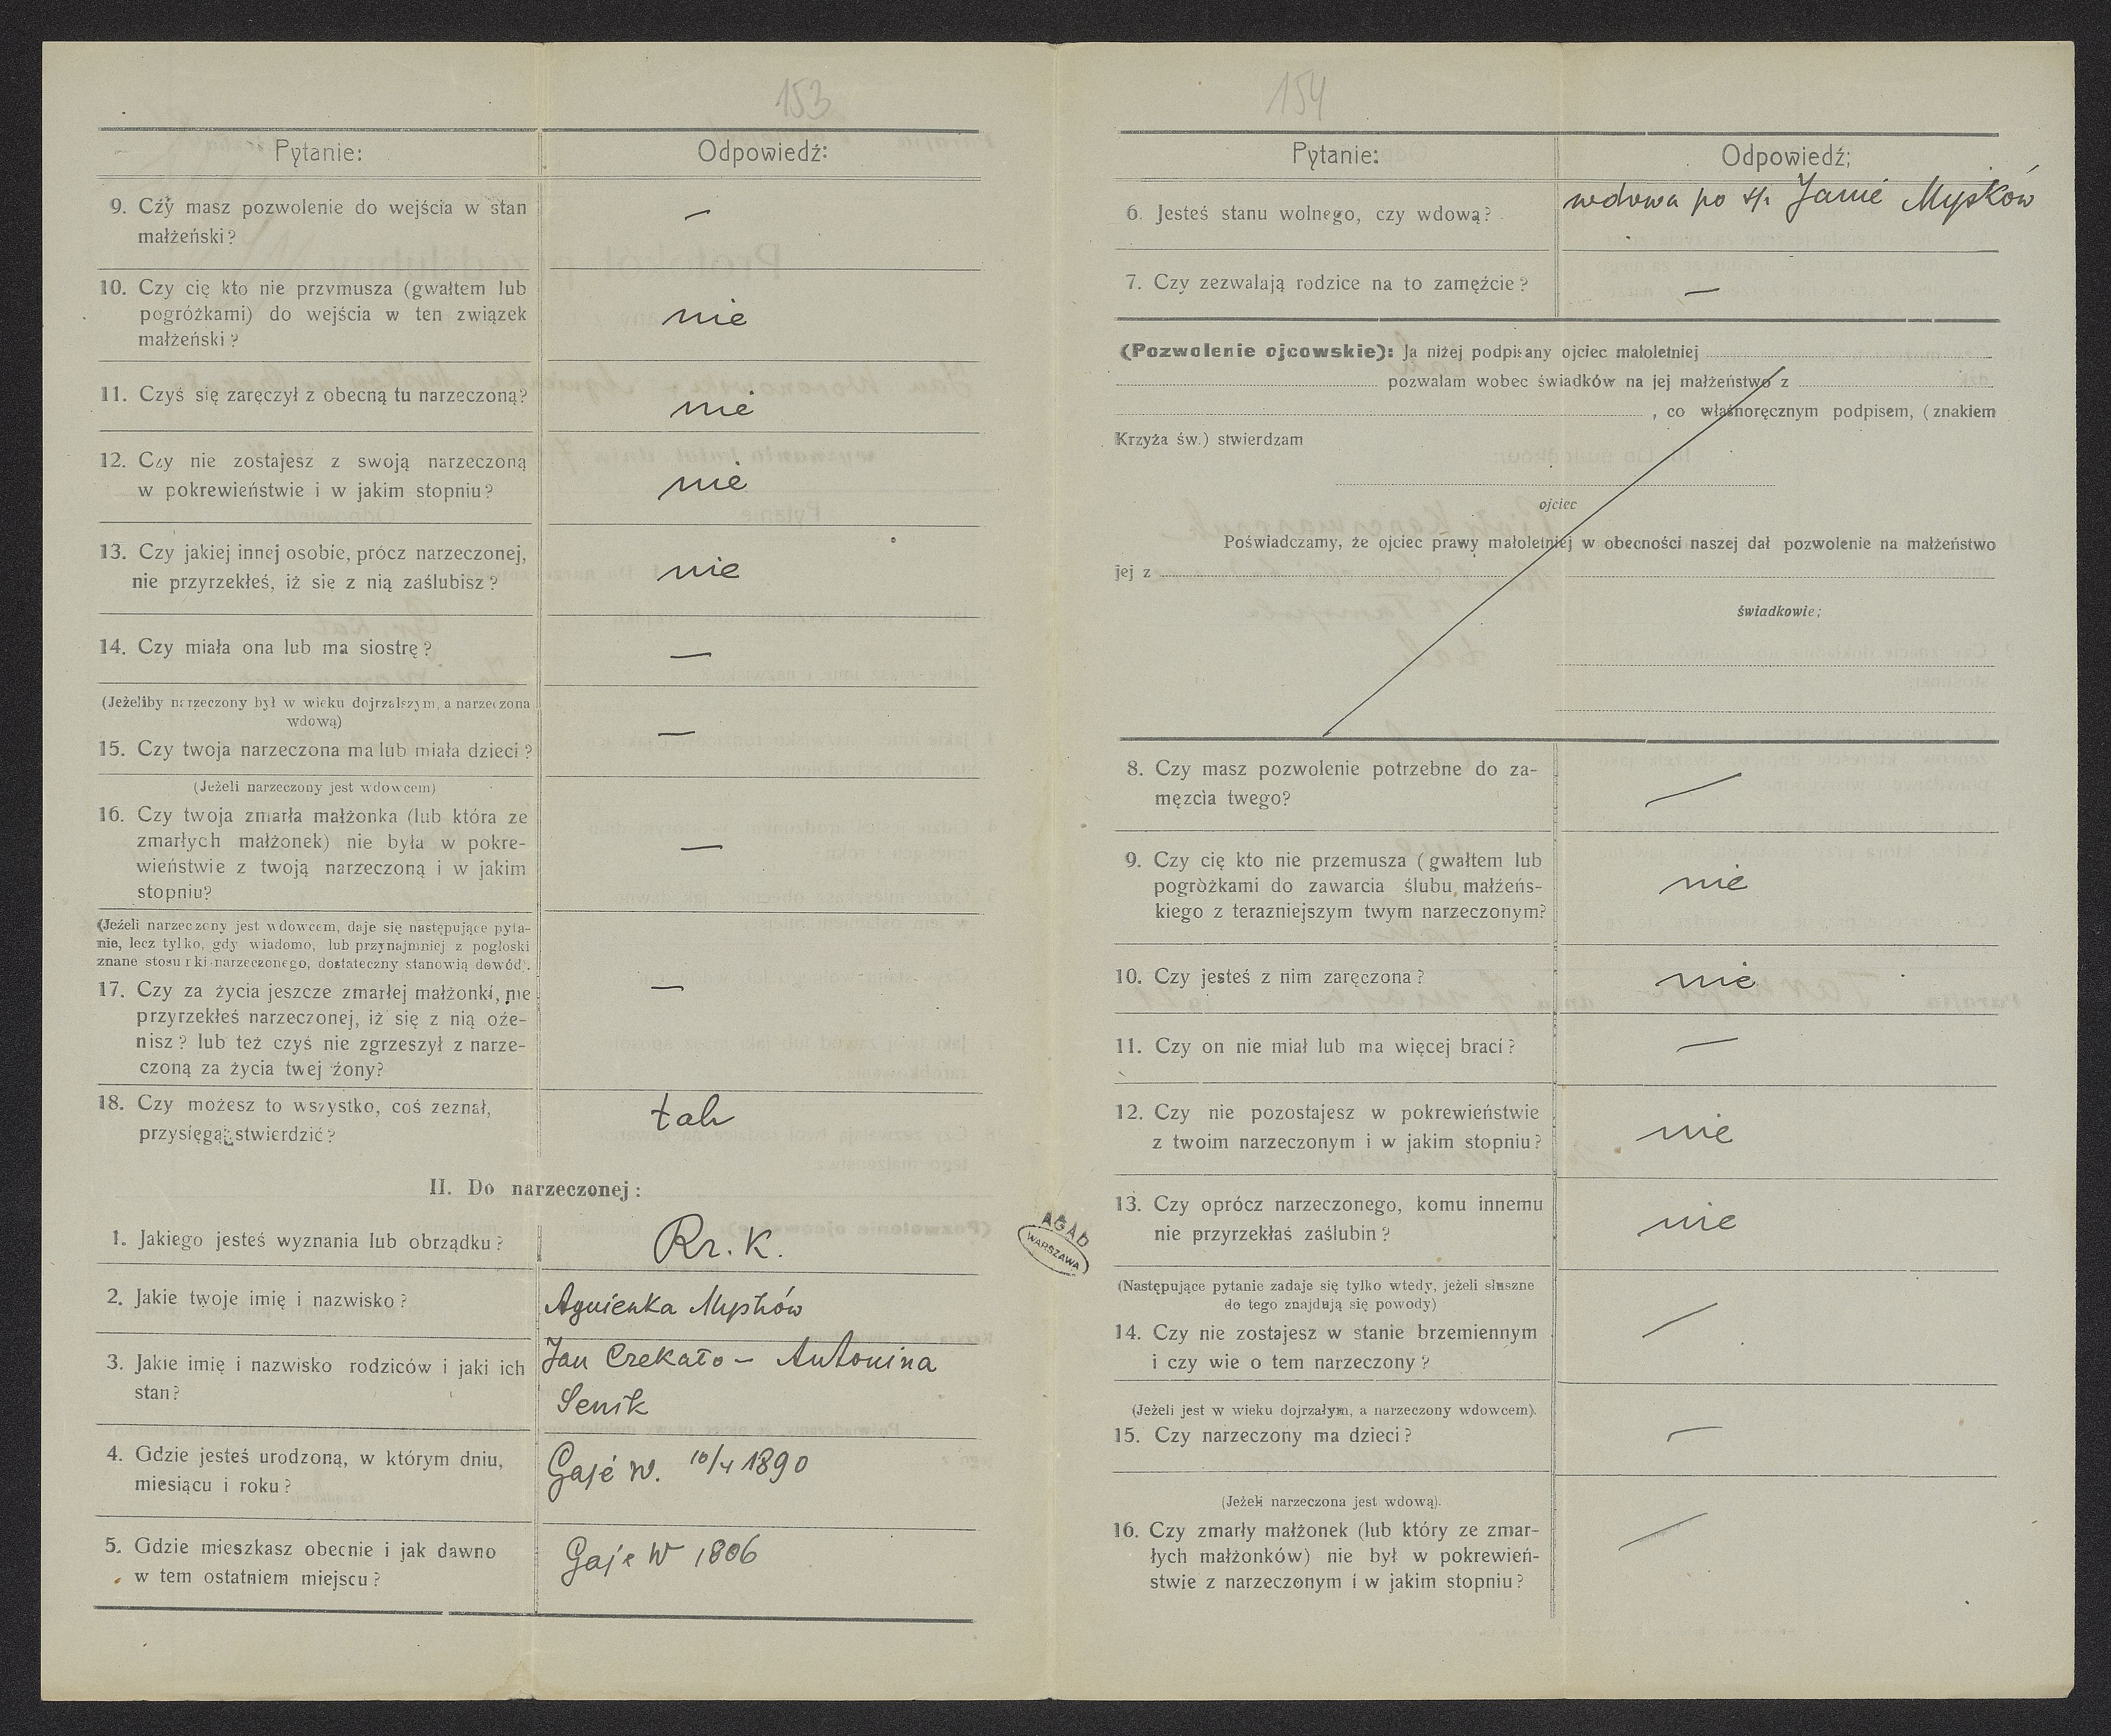 153
Pytanie:
Odpowiedź:
9. Czy masz pozwolenie do wejścia w stan
małżeński?
—
10. Czy cię kto nie przymusza (gwałtem lub
pogróżkami) do wejścia w ten związek
małżeński?
nie
11. Czyś się zaręczył z obecną tu narzeczoną?
nie
12. Czy nie zostajesz z swoją narzeczoną
w pokrewieństwie i w jakim stopniu?
nie
13. Czy jakiej innej osobie, prócz narzeczonej,
nie przyrzekłeś, iż się z nią zaślubisz?
nie
14. Czy miała ona lub ma siostrę?
—
(Jeżeliby narzeczony był w wieku dojrzalszym, a narzeczona
wdową)
15. Czy twoja narzeczona ma lub miała dzieci?
—
(Jeżeli narzeczony jest wdowcem)
16. Czy twoja zmarła małżonka (lub która ze
zmarłych małżonek) nie była w pokre-
wieństwie z twoją narzeczoną i w jakim
stopniu?
—
(Jeżeli narzeczony jest wdowcem, daje się następujące pyta-
nie, lecz tylko, gdy wiadomo, lub przynajmniej z pogłoski
znane stosunki narzeczonego, dostateczny stanowią dowód.
17. Czy za życia jeszcze zmarłej małżonki, nie
przyrzekłeś narzeczonej, iż się z nią oże-
nisz? lub też czyś nie zgrzeszył z narze-
czoną za życia twej żony?
—
18. Czy możesz to wszystko, coś zeznał,
przysięgą stwierdzić?
tak
II. Do narzeczonej:
1. Jakiego jesteś wyznania lub obrządku?
Rz. K.
2. Jakie twoje imię i nazwisko?
Agnieszka Myśków
3. Jakie imię i nazwisko rodziców i jaki ich
stan?
Jan Czekało — Antonina
Senik
4. Gdzie jesteś urodzoną, w którym dniu,
miesiącu i roku?
Gaje W. 10/4 1890
5. Gdzie mieszkasz obecnie i jak dawno
w tem ostatniem miejscu?
Gaje W 1806
AGAD
WARSZAWA
154
Pytanie:
Odpowiedź;
6. Jesteś stanu wolnego, czy wdową?
wdowa po śp. Janie Myśków
7. Czy zezwalają rodzice na to zamęźcie?
—
(Pozwolenie ojcowskie): Ja niżej podpisany ojciec małoletniej
pozwalam wobec świadków na jej małżeństwo z
, co własnoręcznym podpisem, (znakiem
Krzyża św.) stwierdzam
ojciec
Poświadczamy, że ojciec prawy małoletniej w obecności naszej dał pozwolenie na małżeństwo
jej z
świadkowie;
8. Czy masz pozwolenie potrzebne do za-
męzcia twego?
—
9. Czy cię kto nie przemusza (gwałtem lub
pogròżkami do zawarcia ślubu małżeńs-
kiego z terazniejszym twym narzeczonym?
nie
10. Czy jesteś z nim zaręczona?
nie
11. Czy on nie miał lub ma więcej braci?
—
12. Czy nie pozostajesz w pokrewieństwie
z twoim narzeczonym i w jakim stopniu?
nie
13. Czy oprócz narzeczonego, komu innemu
nie przyrzekłaś zaślubin?
nie
(Następujące pytanie zadaje się tylko wtedy, jeżeli słuszne
do tego znajdują się powody)
14. Czy nie zostajesz w stanie brzemiennym
i czy wie o tem narzeczony?
—
(Jeżeli jest w wieku dojrzałym, a narzeczony wdowcem).
15. Czy narzeczony ma dzieci?
—
(Jeżeli narzeczona jest wdową).
16. Czy zmarły małżonek (lub który ze zmar-
łych małżonków) nie był w pokrewień-
stwie z narzeczonym i w jakim stopniu?
—